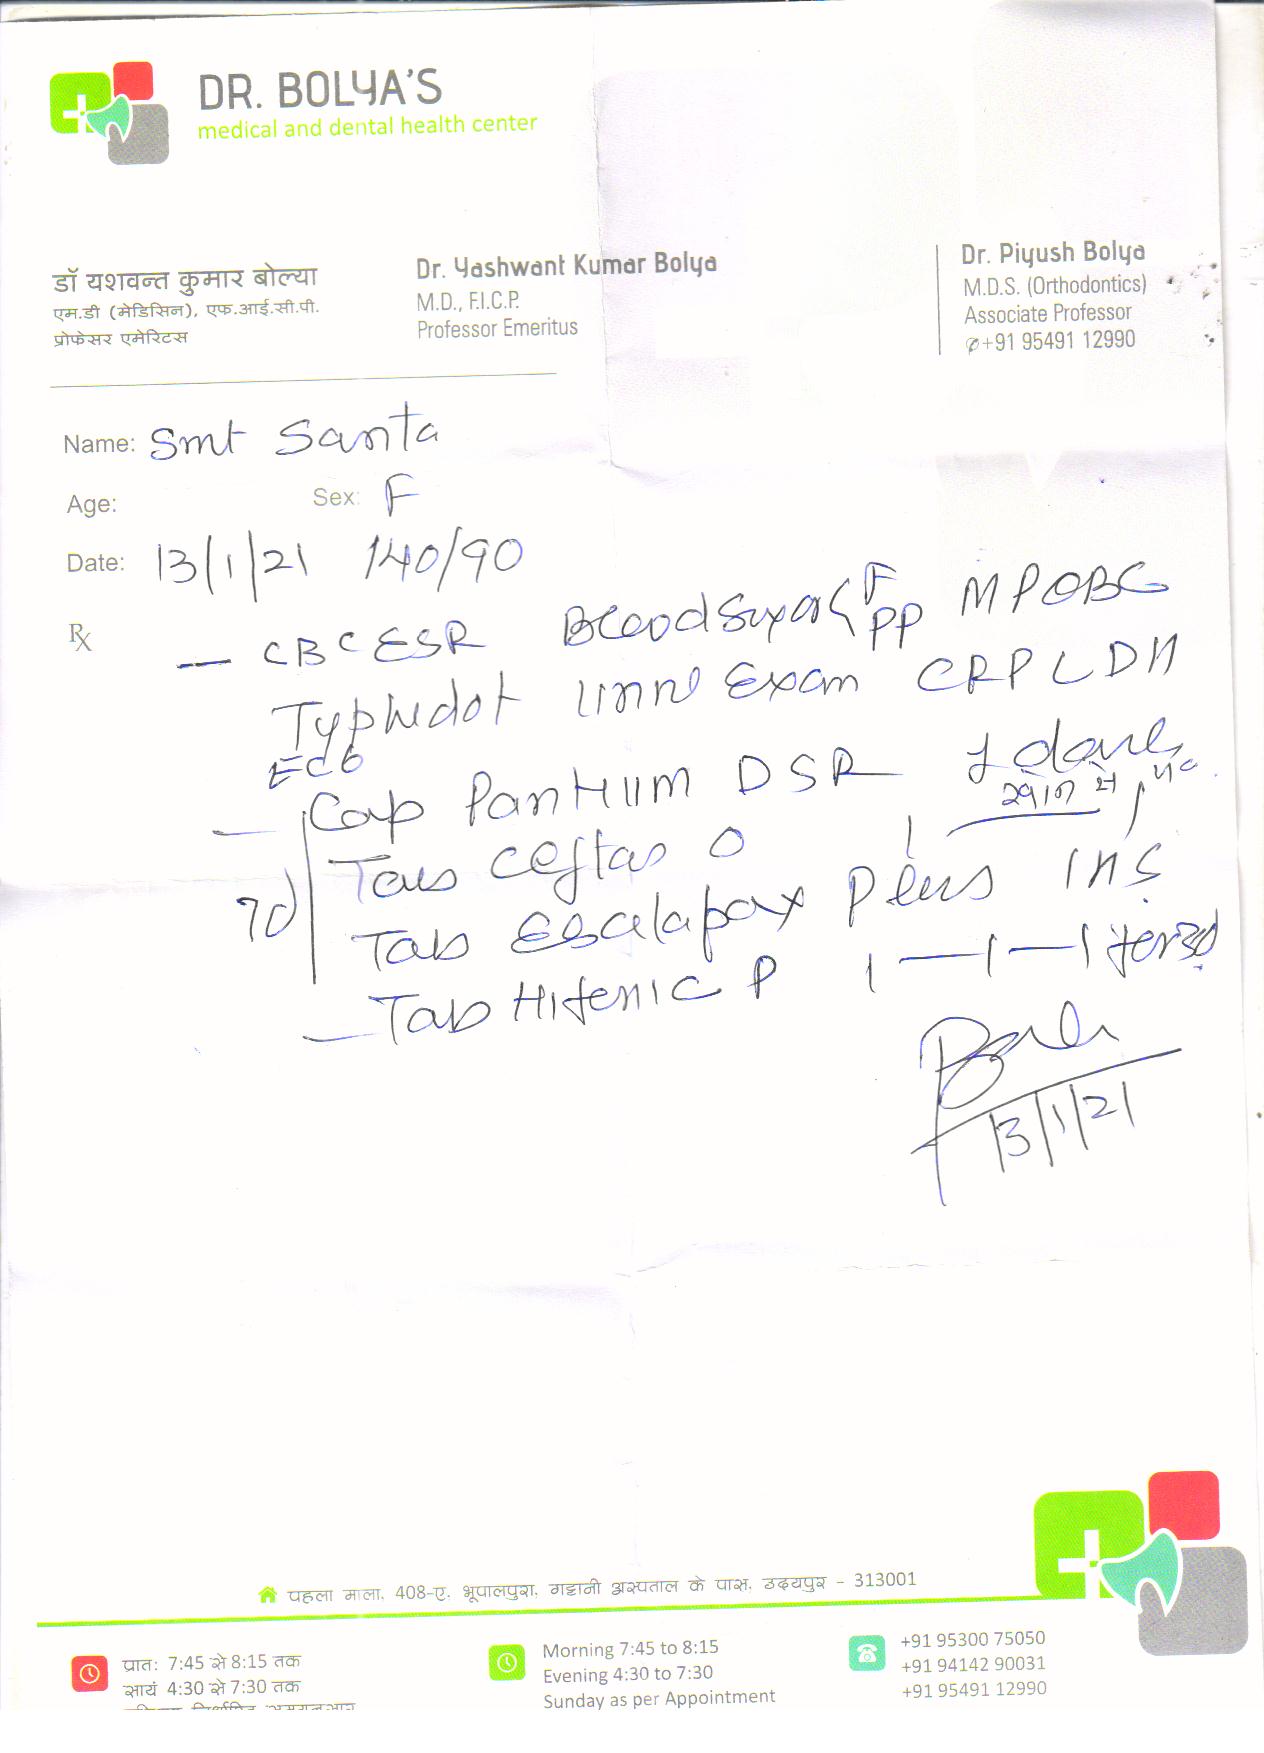 DR. BOLYA'S
medical and dental health center
डॉ यशवन्त कुमार बोल्या
एम.डी (मेडिसिन), एफ.आई.सी.पी.
प्रोफेसर एमेरिटस
Dr. Yashwant Kumar Bolya
M.D., F.I.C.P.
Professor Emeritus
Dr. Piyush Bolya
M.D.S. (Orthodontics)
Associate Professor
✆+91 95491 12990
Name: Smt Santa
Age: Sex: F
Date: 13/1/21 140/90
Rx
— CBC ESR Blood Sugar < F PP MP QBC
Typhidot Urine Exam CRP LDH
ECG
— Cap Pantium DSR
Tab Ceftas O 1 1
7d Tab Plus
— Tab Hifenic P 1 — 1 — 1 for 3d
13/1/21
पहला माला, 408-ए, भूपालपुरा, गट्टानी अस्पताल के पास, उदयपुर - 313001
प्रातः 7:45 से 8:15 तक
सायं 4:30 से 7:30 तक
Morning 7:45 to 8:15
Evening 4:30 to 7:30
Sunday as per Appointment
+91 95300 75050
+91 94142 90031
+91 95491 12990